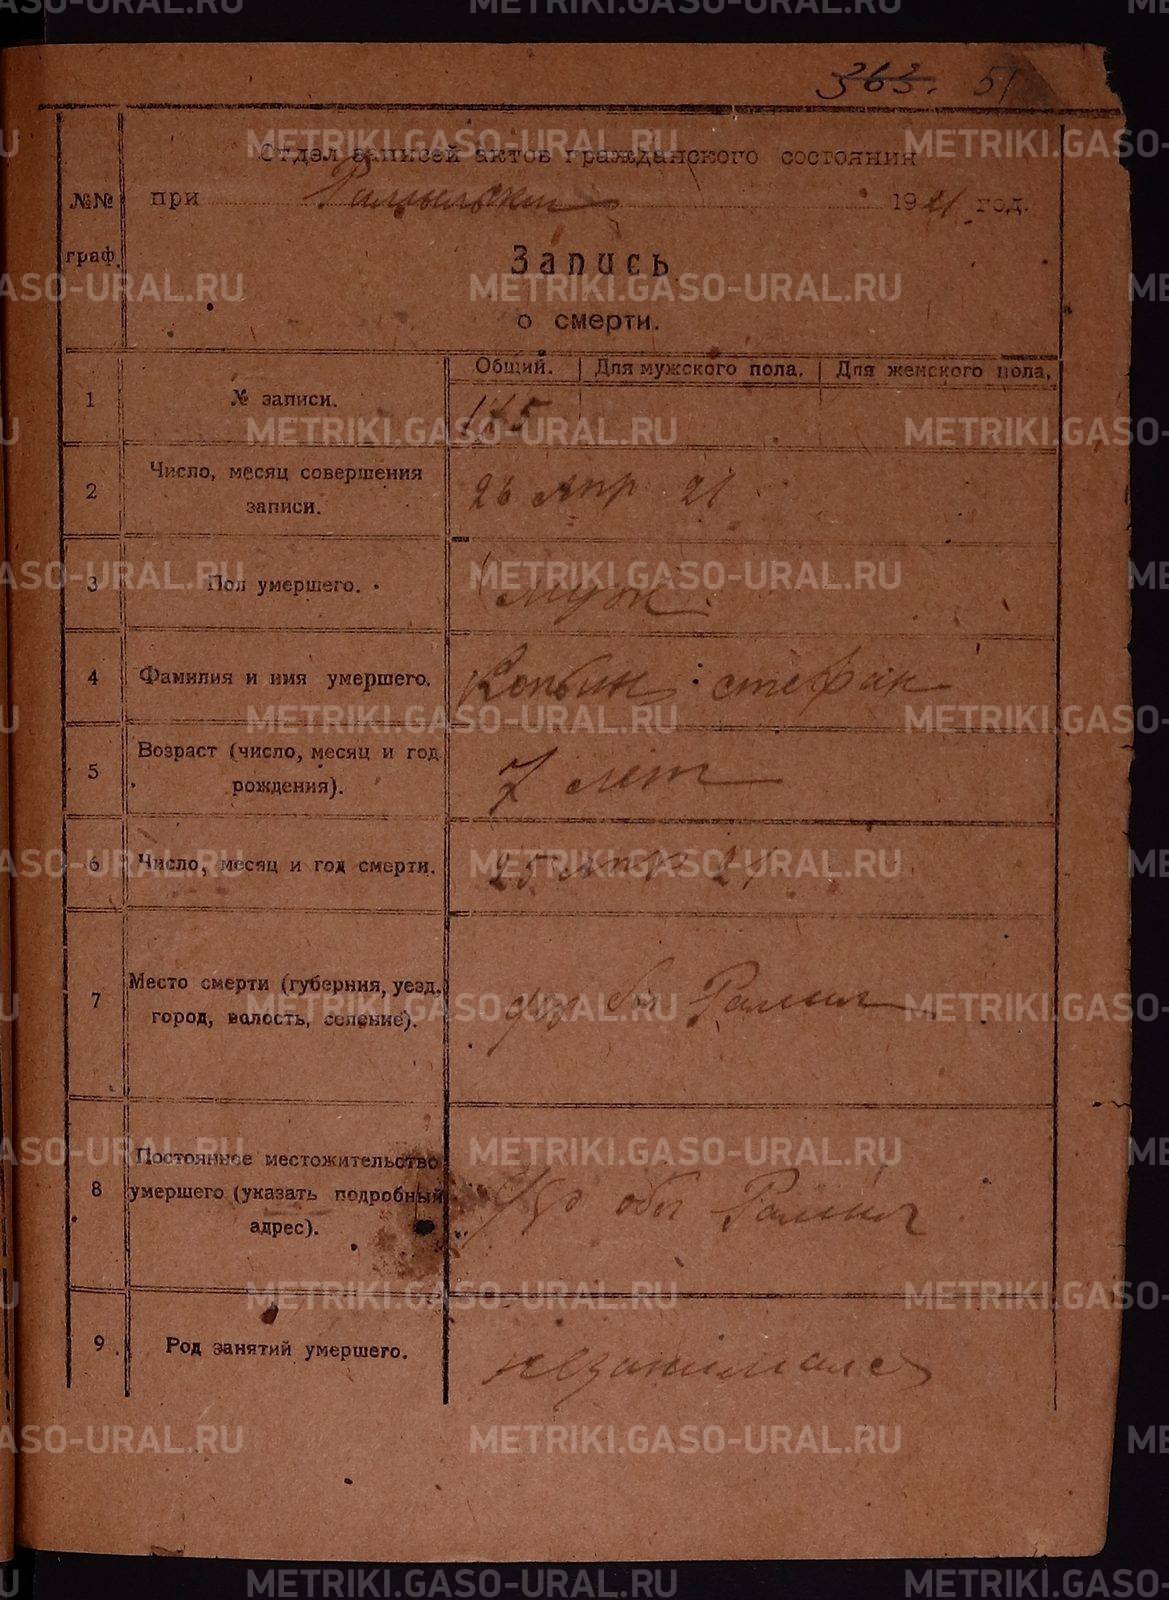 363. 51
Отдел записей актов гражданского состояния
№№ при 1921 год.
граф.
Запись
о смерти.
Общий. Для мужского пола. Для женского пола,
1 № записи. 175
2 Число, месяц совершения
записи. 26 Апр 21
3 Пол умершего. муж
4 Фамилия и имя умершего. стефан
5 Возраст (число, месяц и год
рождения). 7 лет
6 Число, месяц и год смерти. 25 Апр 21
7 Место смерти (губерния, уезд,
город, волость, селение).
8 Постоянное местожительство
умершего (указать подробный
адрес).
9 Род занятий умершего. незанимался
METRIKI.GASO-URAL.RU